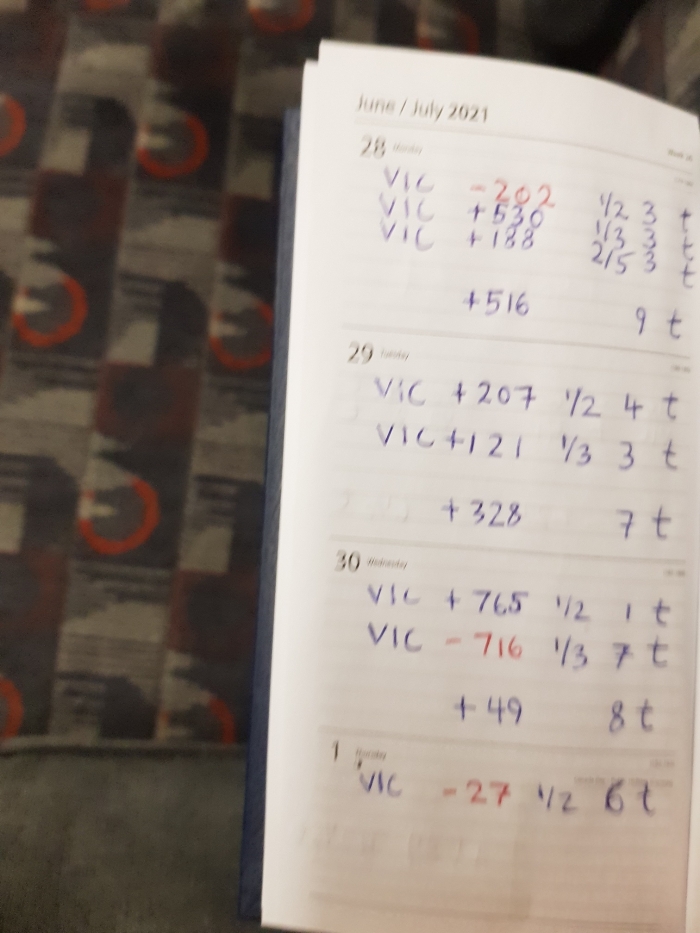 June / July 2021
28 Monday
VIC -202 1/2 3 t
VIC +530 1/3 3 t
VIC +188 2/5 3 t
+516 9 t
29 Tuesday
VIC +207 1/2 4 t
VIC +121 1/3 3 t
+328 7 t
30 Wednesday
VIC +765 1/2 1 t
VIC -716 1/3 7 t
+49 8 t
1
VIC -27 1/2 6 t